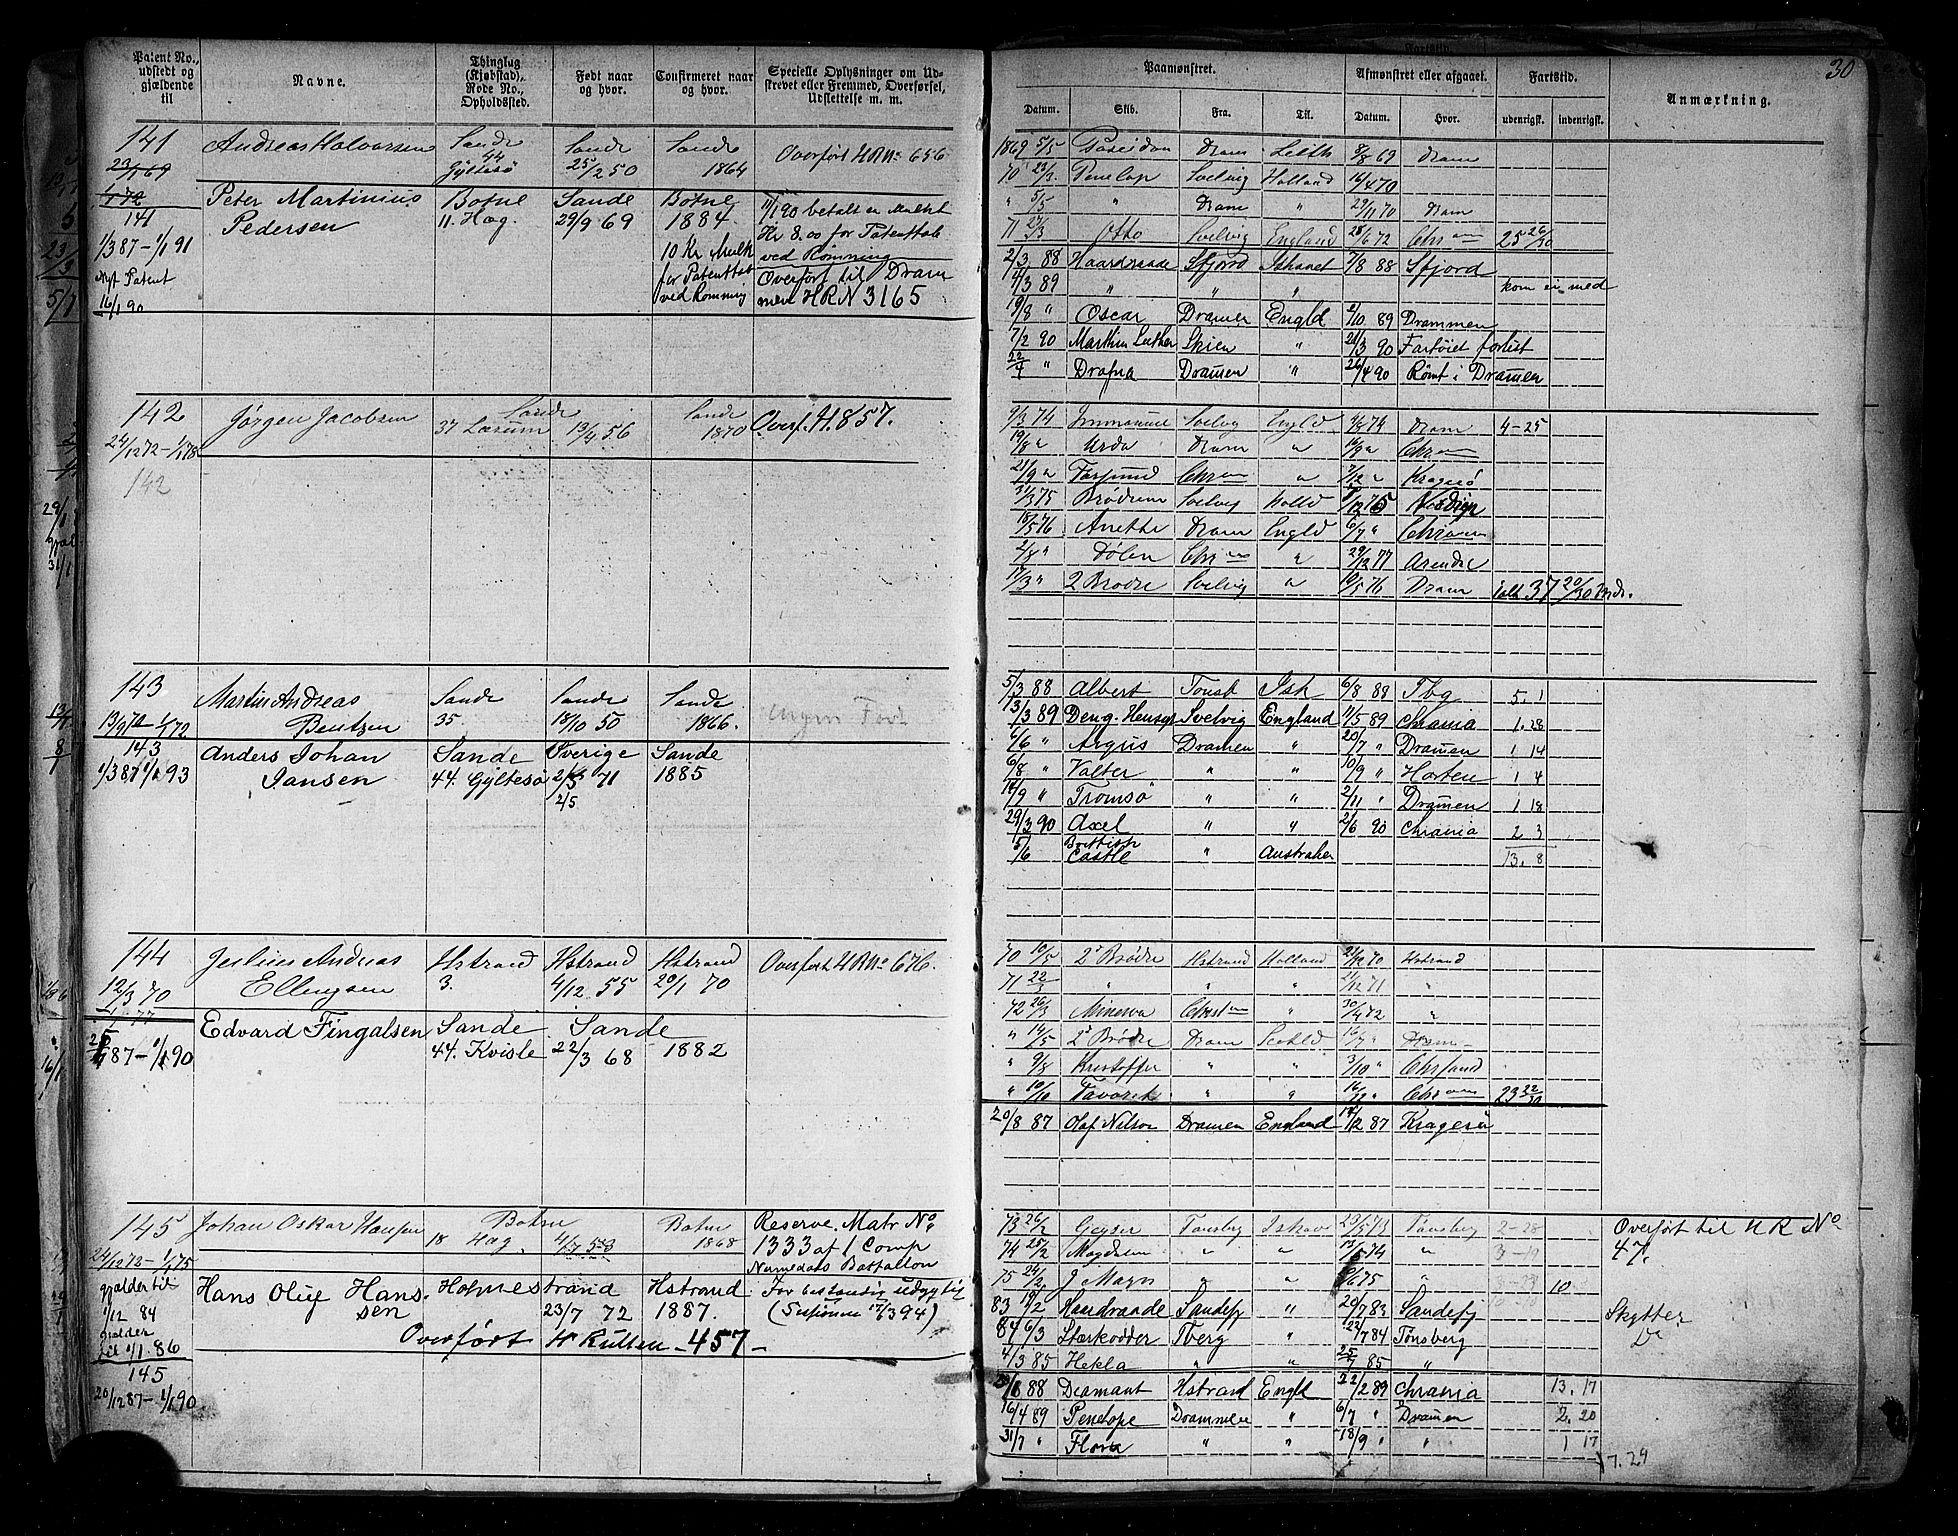 Patent No.,
udstedt og
gjældende
til
Navne.
Thinglag
(Kjøbstad),
Rode No.,
Opholdssted.
Født naar
og hvor.
Confirmeret naar
og hvor.
Specielle Oplysninger om Ud-
skrevet eller Fremmed, Overførsel,
Udslettelse m. m.
141
Andreas Halvorsen
Sande
44
Gyltesø
Sande
25/2 50
Sande
1864
Overført HRNo 656
23/1 69
1/1 72
141
1/3 87 – 1/1 91
Nyt Patent
16/1 90
Peter Martinius
Pedersen
Botne
11. Hæg.
Sande
29/9 69
Botne
1884.
10 Kr Mulkt
for Patenttab
ved Rømning
11/1 90 betalt en Mulkt
Kr 8.00 for Patenttab
ved Rømning
Overført til Dram
men HRN 3165
142
24/12 72 – 1/1 78
142
Jørgen Jacobsen
Sande
37 Læsum
13/4 56
Sande
1870
Overf. H. 857.
143
Martin Andreas
Bentzen
Sande
35.
Sande
18/10 50
Sande
1866.
ingen Fart
143
1/3 87 1/1 93
Anders Johan
Jansen
Sande
44. Gyltesø
Sverige
2/3 71
2/5
Sande
1885
144
12/3 70
1/1 77
Julius Andreas
Ellingsen
Hstrand
3.
Hstrand
4/12 55
Hstrand
20/1 70
Overført HRNo 676.
87 – 1/1 90
Edvard Fingalsen
Sande
44. Kvisle
Sande
22/3 68
1882
145
24/12 72 – 1/1 75
Johan Oskar Hansen
Botne
18 Hæg.
4/7 53
Botne
1868
Reserve. Matr No
1333 af 1 Comp
Numedals Battallon
gjælder til
1/12 84
gjælder
til 1/1. 86
145
20/12 87 – 1/1 90
Hans Oluf Hans
sen
Holmestrand
23/7 72
Hstrand
1887.
For bestandig udygtig
(Sessionen 17/6 94)
Overført H Rullen – 457 –
30
Paamønstret.
Afmønstret eller afgaaet.
Fartstid.
Anmærkning.
Datum.
Skib.
Fra.
Til.
Datum.
Hvor.
udenrigsk.
indenrigsk.
1869 5/5 Poseidon Dram Leith 8/8 69 Dram
70 23/2 Penelop Svelvig Holland 14/4 70
" 5/5 " Dram " 29/11 70 Dram
71 27/3 Otto Svelvig England 28/6 72 Chr an 25 26/30
2/3 88 Haardraade Sfjord Ishavet 7/8 88 Sfjord
4/3 89 " " " kom ei med
19/8 " Oscar Dramen Engld 2/10 89 Drammen
7/2 90 Marthin Luther Skien " 21/3 90 Fartøiet forlist
22/4 " Drafna Dramen " 26/4 90 Rømt i Dramen
9/3 74 Immanuel Svelvg Engld 4/8 74 Dram 4-25
19/8 " Urda Dram " 14/9 " Chr an
21/9 " Farsund Chr an " 7/12 " Kragerø
31/3 75 Brødrene Svelvig Holld 12 75
15/5 76 Anette Dram Engld 6/7 " Chr an
2/8 " Dølen Chr an " 29/12 77 Arendal
17/3 " 2 Brødre Svelvig " 10/5 76 Dram ialt 37 20/30 Mdr.
5/3 88 Albert Tonsb Ish 6/8 88 Tbg 5. 1
13/3 89 Deng. Hensyn Svelvig England 11/5 89 Chrania 1. 28
6/6 " Argus Dramen " 20/7 " Draman 1 14
6/8 " Valter " " 10/9 " Horten 1 4
14/9 " Tromsø " " 2/11 " Dramen 1 18
29/3 90 Axel " " 2/6 90 Chrania 2 3
5/6 Brittish Castle " Australien 13. 8
70 10/5 2 Brødre Hstrand Holland 21/12 70 Hstrand
71 22/3 " " " 21/12 71 "
72 26/3 Minerva Christ an " 30/4 72 "
" 14/5 2 Brødre Dram Scotld 16/7 " Dram
" 9/8 Kristoffer " " 3/10 " Chrsand
" 10/10 Favorit " " 16/12 " Chr an 23 22/30
20/8 87 Olaf Nilson Dramen England 14/12 87 Kragerø
73 26/2 Geyser Tønsberg Ishav 23/5 73 Tønsberg 2-28 Overført til HR No
74 25/2 Magdalena " " 13/5 74 " 3-19 47.
75 24/2 J Mayn " " 75 " 3-29 10
83 19/2 Haardraade Sandefj " 20/7 83 Sandefj Skytter
84 6/3 Stærkodder Tberg " 22/7 84 Tønsberg Do
4/3 85 Hekla " " 25/7 85 "
88 Diamant Hstrand Engld 22/2 89 Chrania 13. 17
16/4 89 Penelope Drammen " 6/7 " Dramen 2. 20
31/7 " Flora " " 18/9 " " 1 17
17. 24